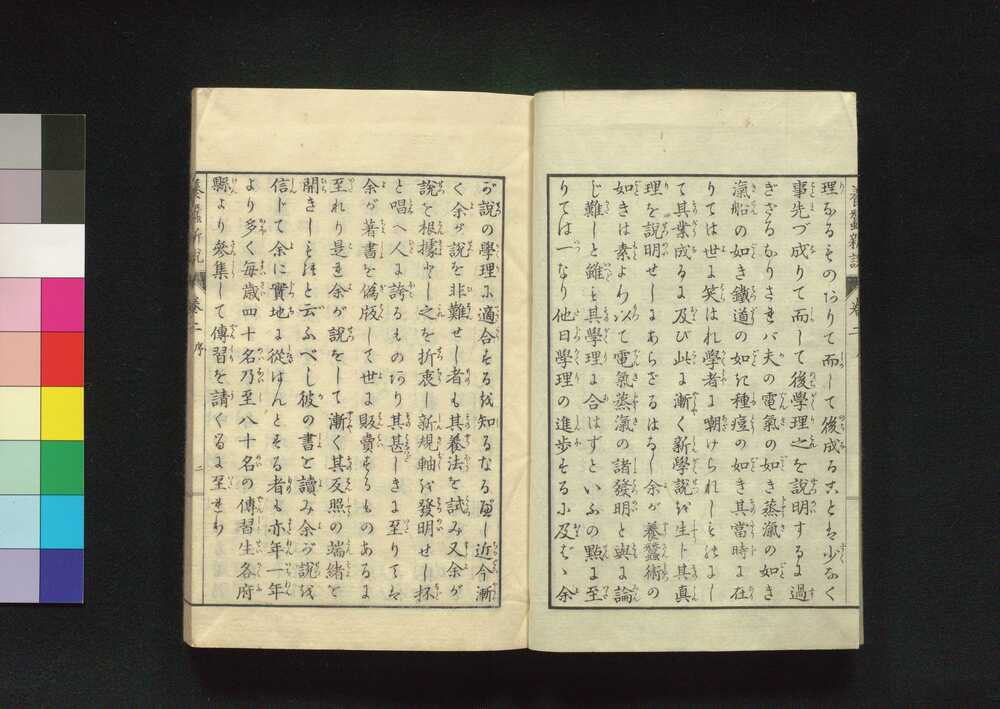 理なるものありて而して後成ることは少なく
事先づ成りて而して後學理之を說明するに過
ぎざるなりされバ夫の電氣の如き蒸滊の如き
滊船の如き鐵道の如き種痘の如き其當時に在
りては世に笑はれ學者に嘲けられしものにし
て其業成るに及び此に漸く新學說を生ト其眞
理を說明せしにあらざるはなし余が養蠶術の
如きは素より以て電氣蒸氣の諸發明と與に論
じ難しと雖も其學理に合はずといふの點に至
りては一なり他日學理の進步するに及ばゞ余
が說の學理に適合するを知るなるべし近今漸
く余が說を非難せし者も其養法を試み又余が
說を根據とし之を折衷し新規軸を發明せし抔
と唱へ人に誇るものあり其甚しきに至りては
余が著書を偽版して世に販賣するものあるに
至れり是れ余が說をして漸く其反照の端緒を
開きしものと云ふべし彼の書を讀み余が說を
信じて余に實地に從はんとする者も亦年一年
より多く每歲四十名乃至八十名の傳習生各府
縣より參集して傳習を請くるに至せり
養蠶新說 卷二 序
養蠶新說 卷二 序 二